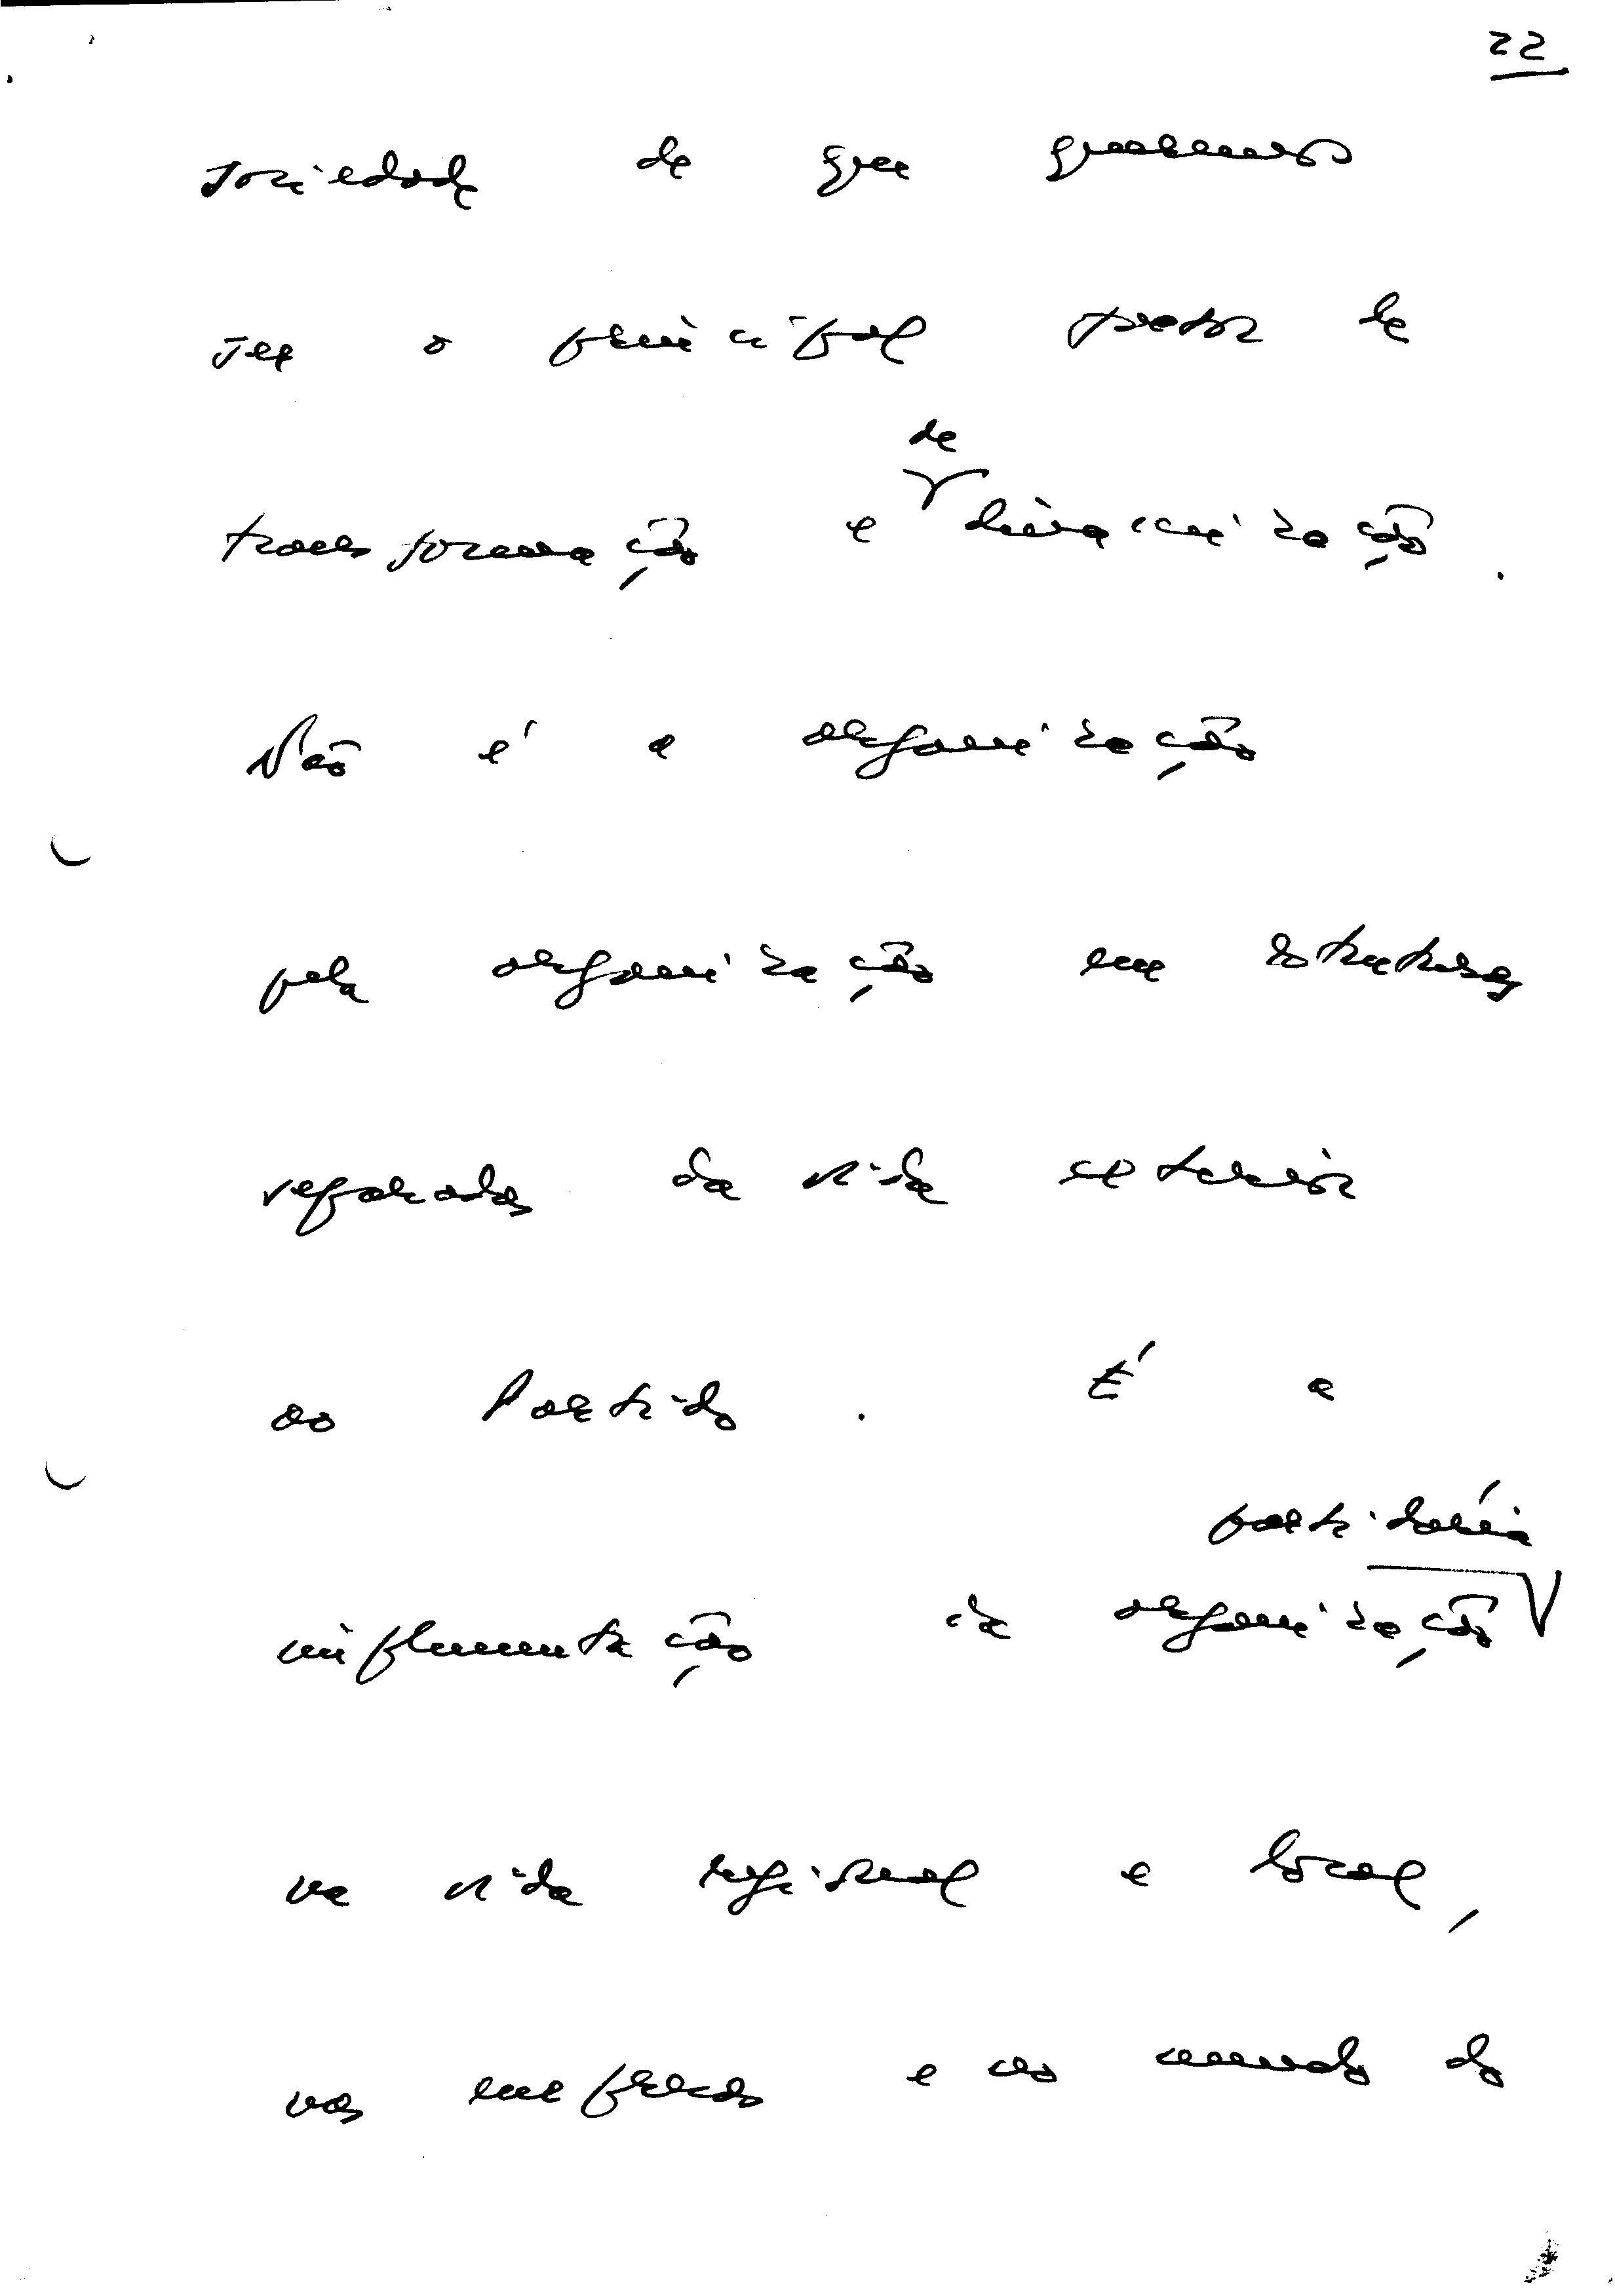 22
sociedade de que queremos
ser o principal motor de
transformação e de dinamização.
Não é a organização
pela organização em estruturas
separadas da vida exterior
ao Partido. É a
implementação da organização partidária
na vida regional e local,
nas empresas e no mundo do